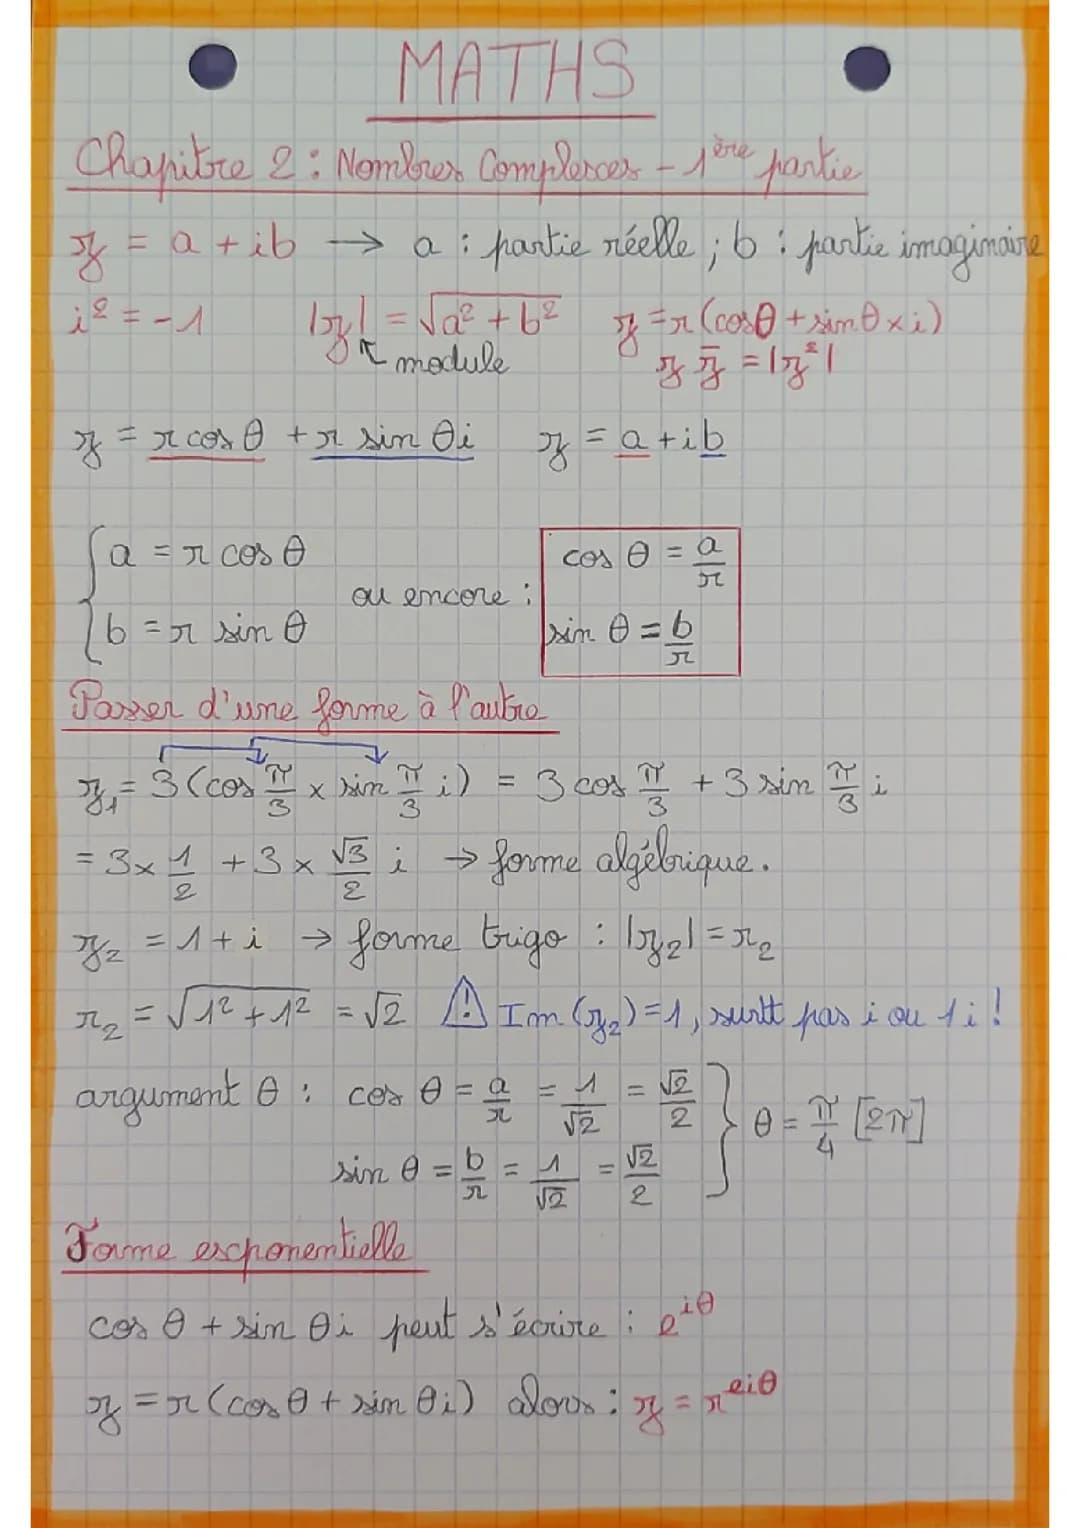 MATHS
Chapitre 2 : Nombres Complexes - 1ère partie
z = a + ib → a : partie réelle ; b : partie imaginaire
i² = -1 |z| = √(a² + b²) z = r (cosθ + sinθ × i)
↖ module z z̄ = |z²|
z = r cos θ + r sin θi z = a + ib
{ a = r cos θ cos θ = a/r
ou encore :
b = r sin θ sin θ = b/r
Passer d'une forme à l'autre
z₁ = 3 (cos π/3 × sin π/3 i) = 3 cos π/3 + 3 sin π/3 i
= 3 × 1/2 + 3 × √3/2 i → forme algébrique.
z₂ = 1 + i → forme trigo : |z₂| = r₂
r₂ = √(1² + 1²) = √2 ⚠ Im (z₂) = 1, surtt pas i ou 1i !
argument θ : cos θ = a/r = 1/√2 = √2/2 } θ = π/4 [2π]
sin θ = b/r = 1/√2 = √2/2
Forme exponentielle
cos θ + sin θi peut s'écrire : e^iθ
z = r (cos θ + sin θi) alors : z = r^eiθ